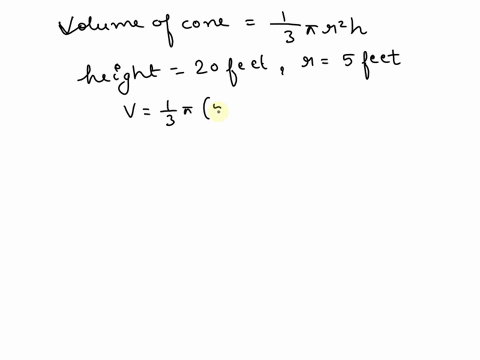 Volume of cone = 1/3 π r²h
height = 20 feet, r = 5 feet
V = 1/3 π (